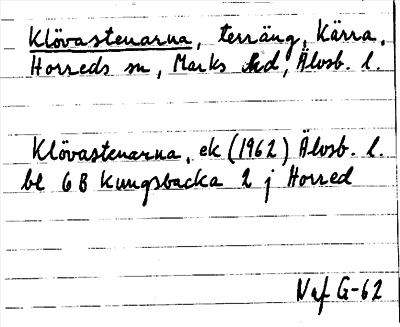 Klövastenarna, terräng, Kärra,
Horreds sn, Marks hd, Älvsb. l.
Klövastenarna, ek (1962) Älvsb. l.
bl 6B Kungsbacka 2 j Horred
Naf G-62